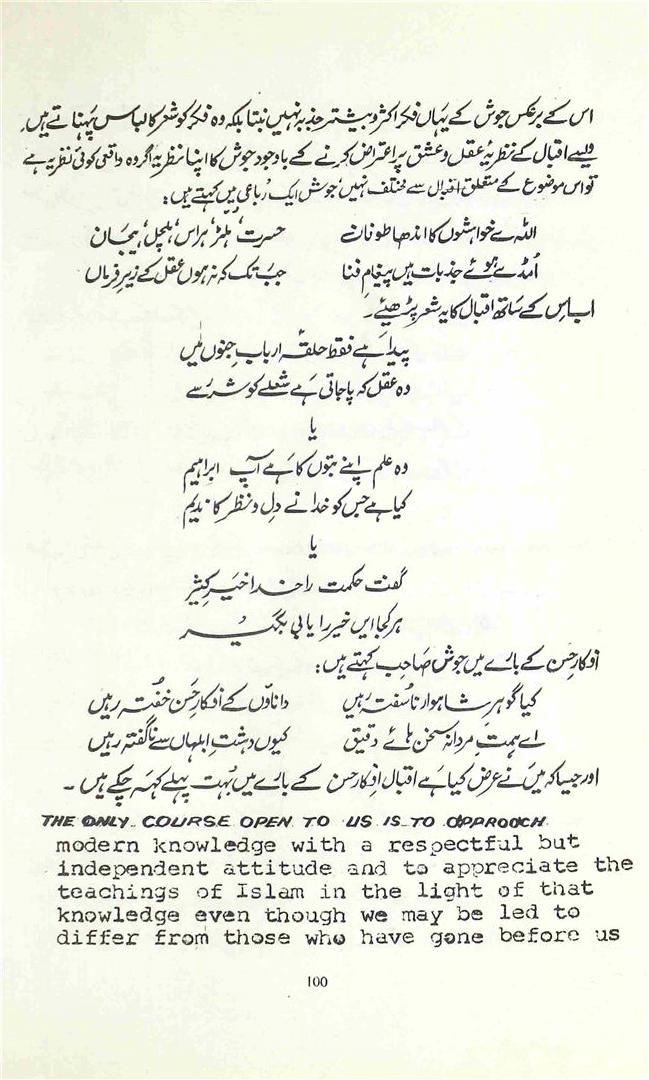 اس کے برعکس جوش کے یہاں فکر اکثر و بیشتر جذبہ نہیں بنتا بلکہ وہ فکر کو شعر کا لباس پہناتے ہیں۔
ویسے اقبال کے نظریۂ عقل و عشق پر اعتراض کرنے کے باوجود جوش کا اپنا نظریہ اگر وہ واقعی کوئی نظریہ ہے
تو اس موضوع کے متعلق اقبال سے مختلف نہیں، جوش ایک رباعی میں کہتے ہیں:
اللہ رے خواہشوں کا اندھا طوفان حسرت، ہلڑ، ہراس، ہلچل، ہیجان
اُمڈے ہوئے جذبات ہیں پیغامِ فنا جب تک کہ نہ ہوں عقل کے زیرِ فرماں
اب اس کے ساتھ اقبال کا یہ شعر پڑھیئے۔
پیدا ہے فقط حلقۂ اربابِ جنوں میں
وہ عقل کہ پا جاتی ہے شعلے کو شرر سے
یا
وہ علم اپنے بتوں کا ہے آپ ابراہیم
کیا ہے جس کو خدا نے دل و نظر کا ندیم
یا
گفت حکمت را خدا خیرِ کثیر
ہر کجا ایں خیر را یابی بگیر
افکارِ حسن کے بارے میں جوش صاحب کہتے ہیں:
کیا گوہرِ شاہوار ناسُفتہ رہیں داناؤں کے افکارِ حسن خُفتہ رہیں
اے ہمتِ مردانہ سخن ہائے دقیق کیوں دہشتِ ابلہاں سے ناگفتہ رہیں
اور جیسا کہ میں نے عرض کیا ہے اقبال افکارِ حسن کے بارے میں بہت پہلے کہہ چکے ہیں۔
THE ONLY COURSE OPEN TO US IS TO APPROOCH
modern knowledge with a respectful but
independent attitude and to appreciate the
teachings of Islam in the light of that
knowledge even though we may be led to
differ from those who have gone before us
100